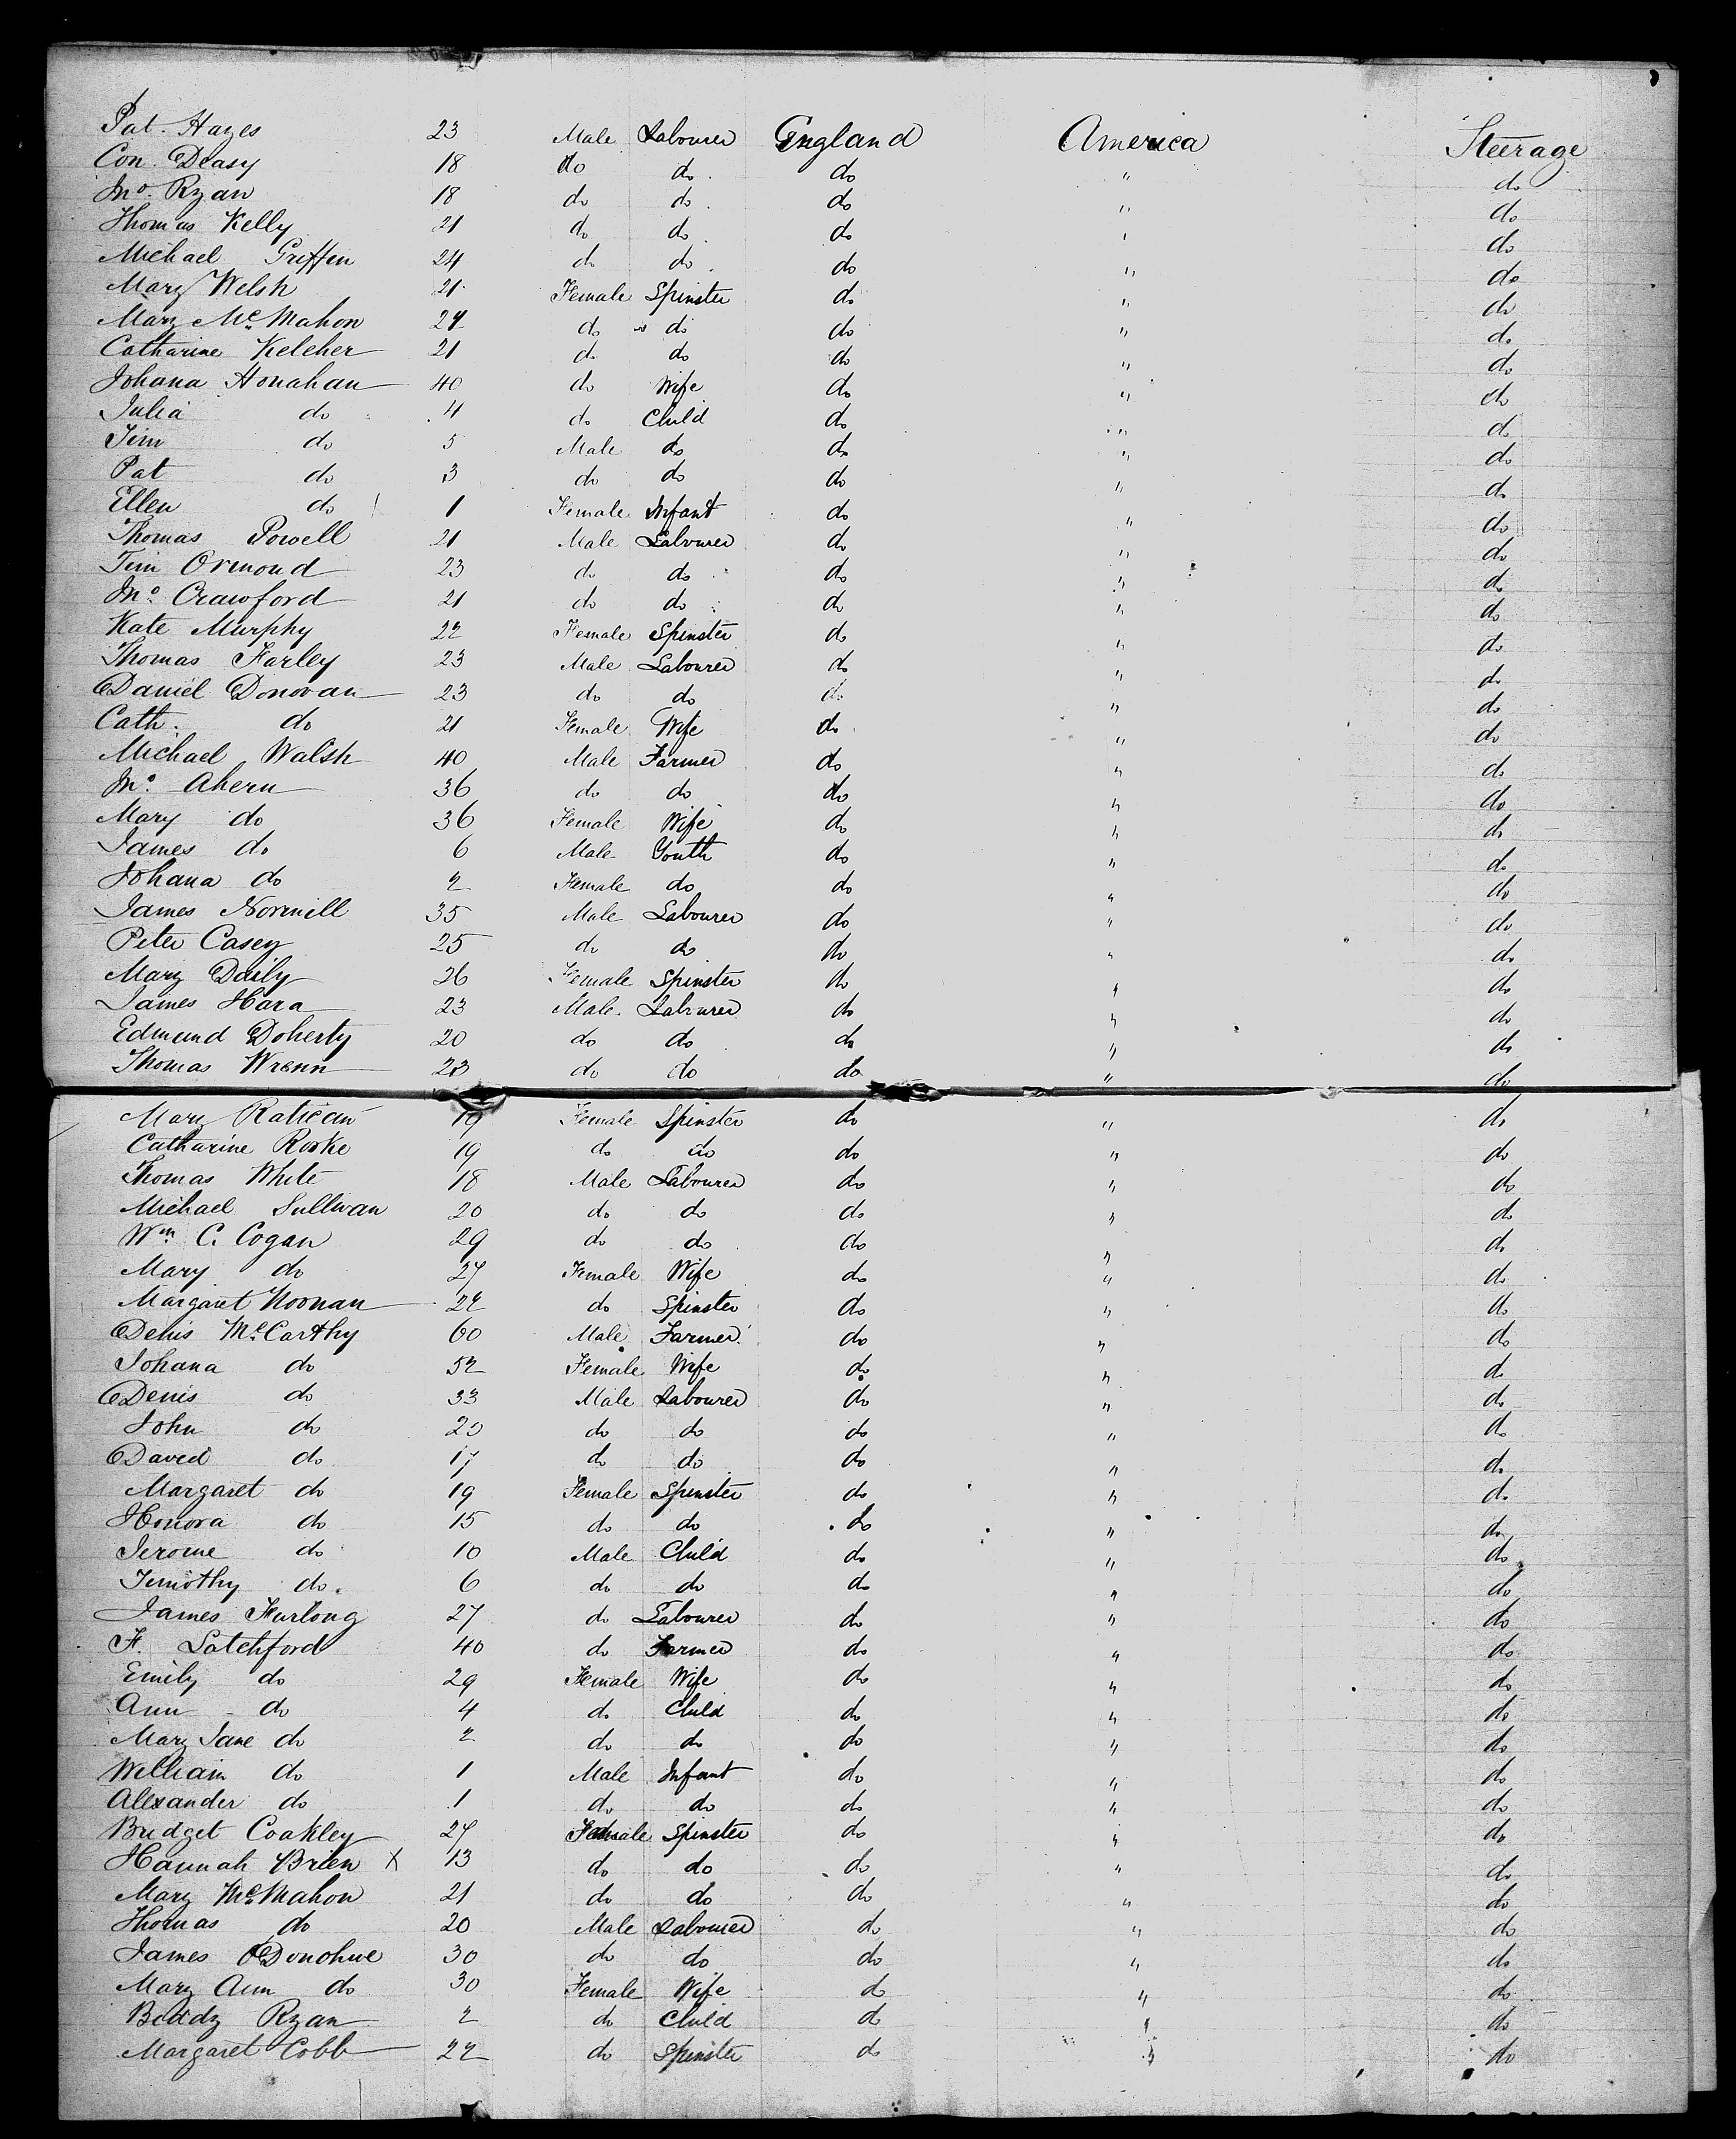 Pat. Hayes 23 Male Labourer England America Steerage
Con. Deasy 18 do do. do " do
Jno. Ryan 18 do do. do " do
Thomas Kelly 21 do do. do " do
Michael Griffin 24 do do. do " do
Mary Welsh 21 Female Spinster do " do
Mary McMahon 24 do do do " do
Catharine Keleher 21 do do do " do
Johana Honahan 40 do Wife do " do
Julia do 4 do Child do " do
Tim do 5 Male do do " do
Pat do 3 do do do " do
Ellen do 1 Female Infant do " do
Thomas Powell 21 Male Labourer do " do
Tim Ormond 23 do do do " do
Jno. Crawford 21 do do do " do
Kate Murphy 22 Female Spinster do " do
Thomas Farley 23 Male Labourer do " do
Daniel Donovan 23 do do do " do
Cath. do 21 Female Wife do " do
Michael Walsh 40 Male Farmer do " do
Jno. Ahern 36 do do do " do
Mary do 36 Female Wife do " do
James do 6 Male Youth do " do
Johana do 2 Female do do " do
James Normill 35 Male Labourer do " do
Peter Casey 25 do do do " do
Mary Daily 26 Female Spinster do " do
James Hara 23 Male Labourer do " do
Edmund Doherty 20 do do do " do
Thomas Wrenn 23 do do do " do
Mary Ratican 19 Female Spinster do " do
Catharine Rorke 19 do do do " do
Thomas White 18 Male Labourer do " do
Michael Sullivan 20 do do do " do
Wm. C. Cogan 29 do do do " do
Mary do 27 Female Wife do " do
Margaret Noonan 22 do Spinster do " do
Denis McCarthy 60 Male Farmer do " do
Johana do 52 Female Wife do " do
Denis do 33 Male Labourer do " do
John do 23 do do do " do
David do 17 do do do " do
Margaret do 19 Female Spinster do " do
Honora do 15 do do do " do
Jerome do 10 Male Child do " do
Timothy do. 6 do do do " do
James Furlong 27 do Labourer do " do
F. Latchford 40 do Farmer do " do
Emily do 29 Female Wife do " do
Ann do 4 do Child do " do
Mary Jane do 2 do do do " do
William do 1 Male Infant do " do
Alexander do 1 do do do " do
Bridget Coakley 24 Female Spinster do " do
Hannah Brien X 13 do do do " do
Mary McMahon 21 do do do " do
Thomas do 20 Male Labourer do " do
James O'Donohue 30 do do do " do
Mary Ann do 30 Female Wife do " do
Biddy Ryan 2 do Child do " do
Margaret Cobb 22 do Spinster do " do